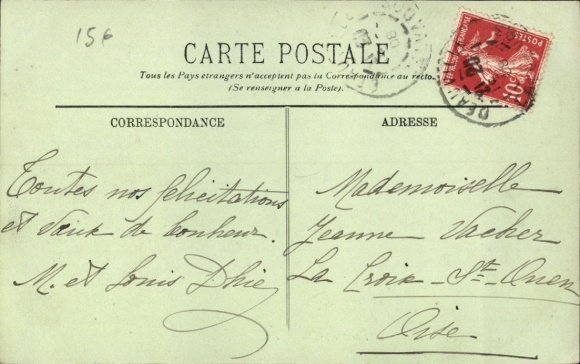 156
CARTE POSTALE
Tous les Pays étrangers n'acceptent pas la Correspondance au recto.
(Se renseigner à la Poste).
CORRESPONDANCE
ADRESSE
Toutes nos félicitations
et vœux de bonheur.
M. et Louis Dhie
Mademoiselle
Jeanne Vacher
La Croix-St-Ouen
Oise
POSTES
10